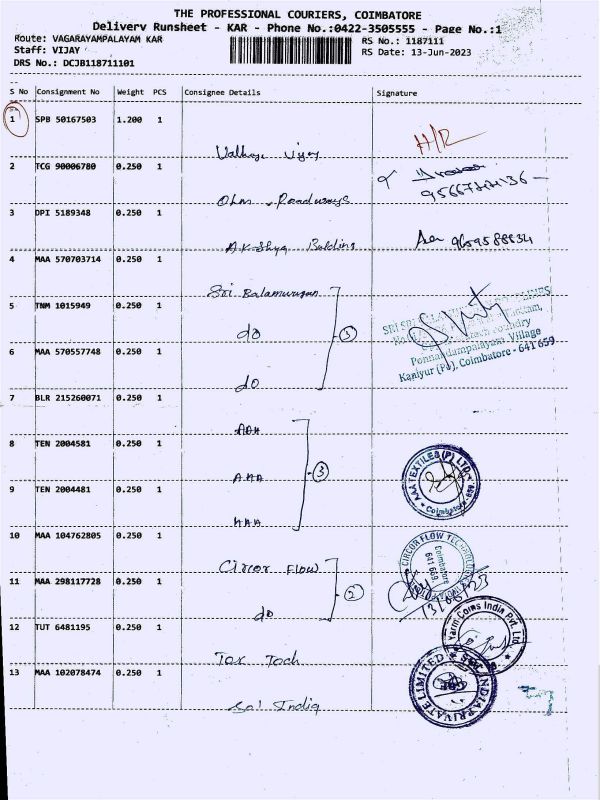 THE PROFESSIONAL COURIERS, COIMBATORE
Delivery Runsheet - KAR - Phone No.:0422-3505555 - Page No.:1
Route: VAGARAYAMPALAYAM KAR
RS No.: 1187111
Staff: VIJAY
RS Date: 13-Jun-2023
DRS No.: DCJB118711101
S No Consignment No Weight PCS Consignee Details Signature
1 SPB 50167503 1.200 1
H/R
Vijay
2 TCG 90006780 0.250 1
Ohm Roadways
3 DPI 5189348 0.250 1
Akshya Bolding
9659588834
4 MAA 570703714 0.250 1
Sri Balamurugan
5 TNM 1015949 0.250 1
do
3
6 MAA 570557748 0.250 1
do
Ponnandampalayam Village
Kaniyur (Po), Coimbatore - 641 659
7 BLR 215260071 0.250 1
AAA
8 TEN 2004581 0.250 1
AAA
3
AAA TEXTILES (P) LTD.
Coimbatore
9 TEN 2004481 0.250 1
AAA
10 MAA 104762805 0.250 1
Circor Flow
CIRCOR FLOW
Coimbatore
641 659
11 MAA 298117728 0.250 1
do
2
13/06/23
12 TUT 6481195 0.250 1
Tex Tech
Yarm Coms India Pvt. Ltd
13 MAA 102078474 0.250 1
India
INDIA PRIVATE LIMITED